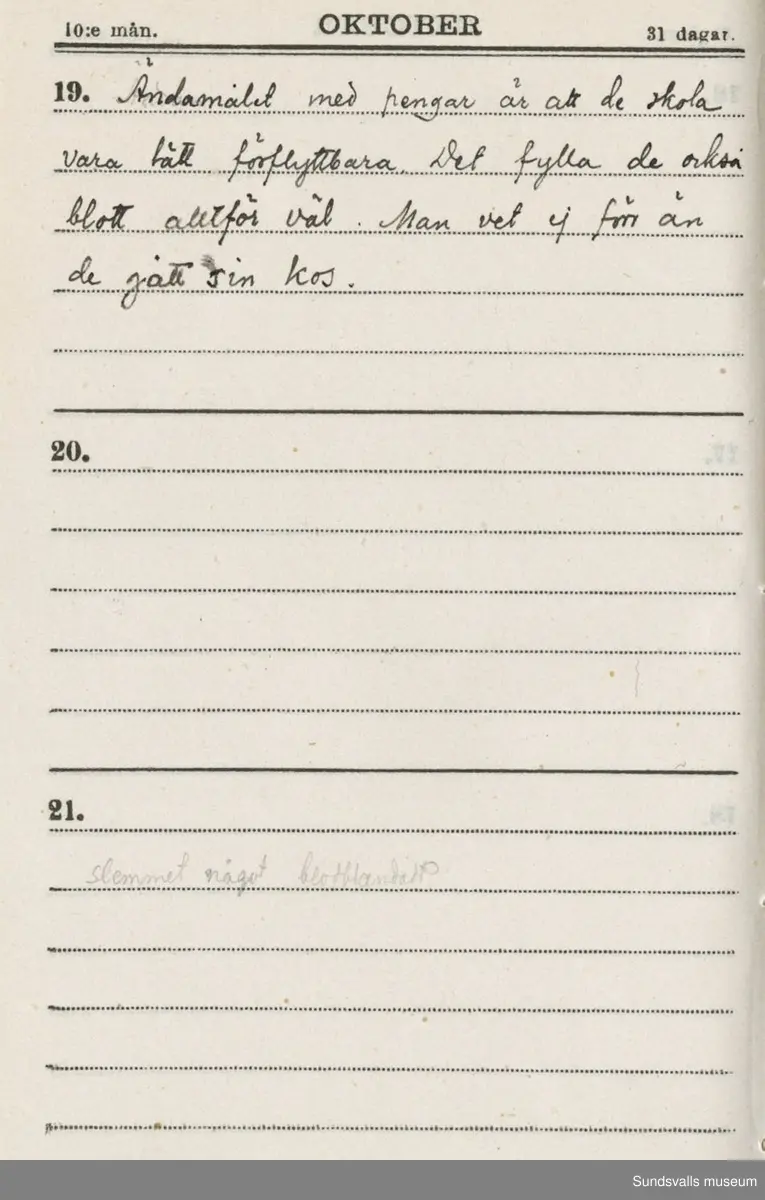 10:e mån. OKTOBER 31 dagar.
19. Ändamålet med pengar är att de skola
vara lätt förflyttbara. Det fylla de också
blott alltför väl. Man vet ej förr än
de gått sin kos.
20.
21.
slemmet något blodblandat
Sundsvalls museum